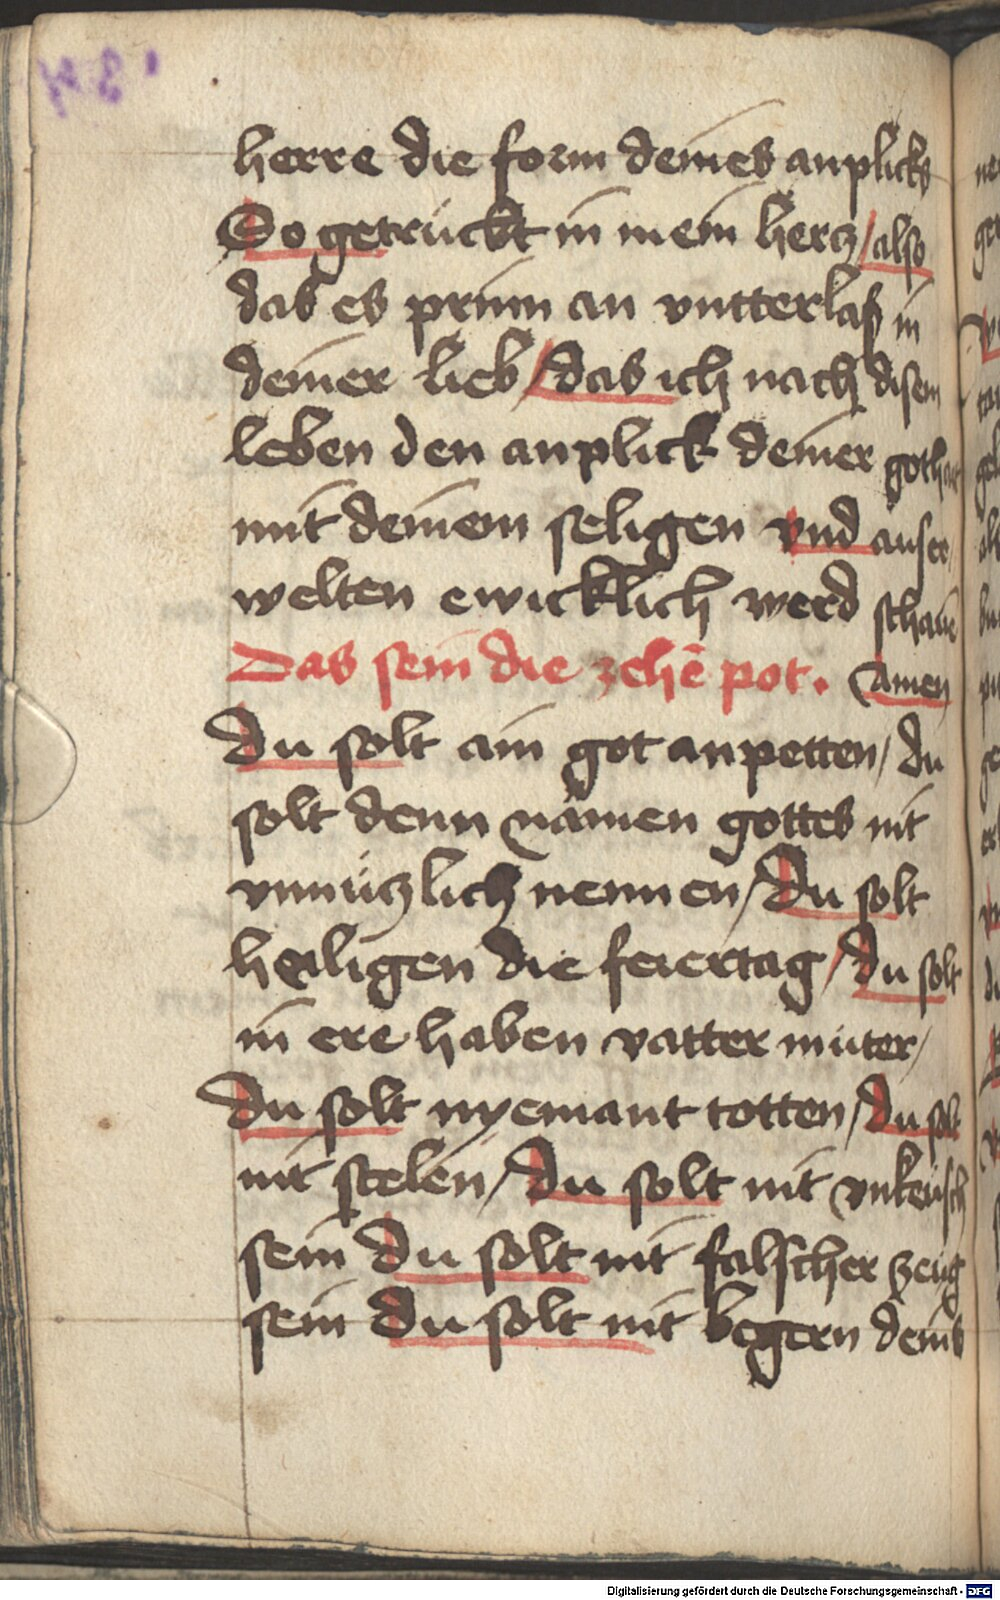 herre die form deines anplicks
So getrückt in mein hercz / also
das es prinn an vntterlas in
deiner lieb / das ich nach disem
leben den anplick deiner goth
mit deinem seligen vnd auser
welten ewicklich werd schaun̄
Das sein die zehē pot. Amen
du solt ain got anpetten / du
solt denn namen gottes nit
vnnüczlich nennen / du solt
heiligen die feiertag / du solt
in ere haben vatter muter /
du solt nyemant totten / du solt
nit stelen / du solt nit vnkeüsch
sein du solt nit falscher zeüg
sein du solt nit begern deins
Digitalisierung gefördert durch die Deutsche Forschungsgemeinschaft - DFG